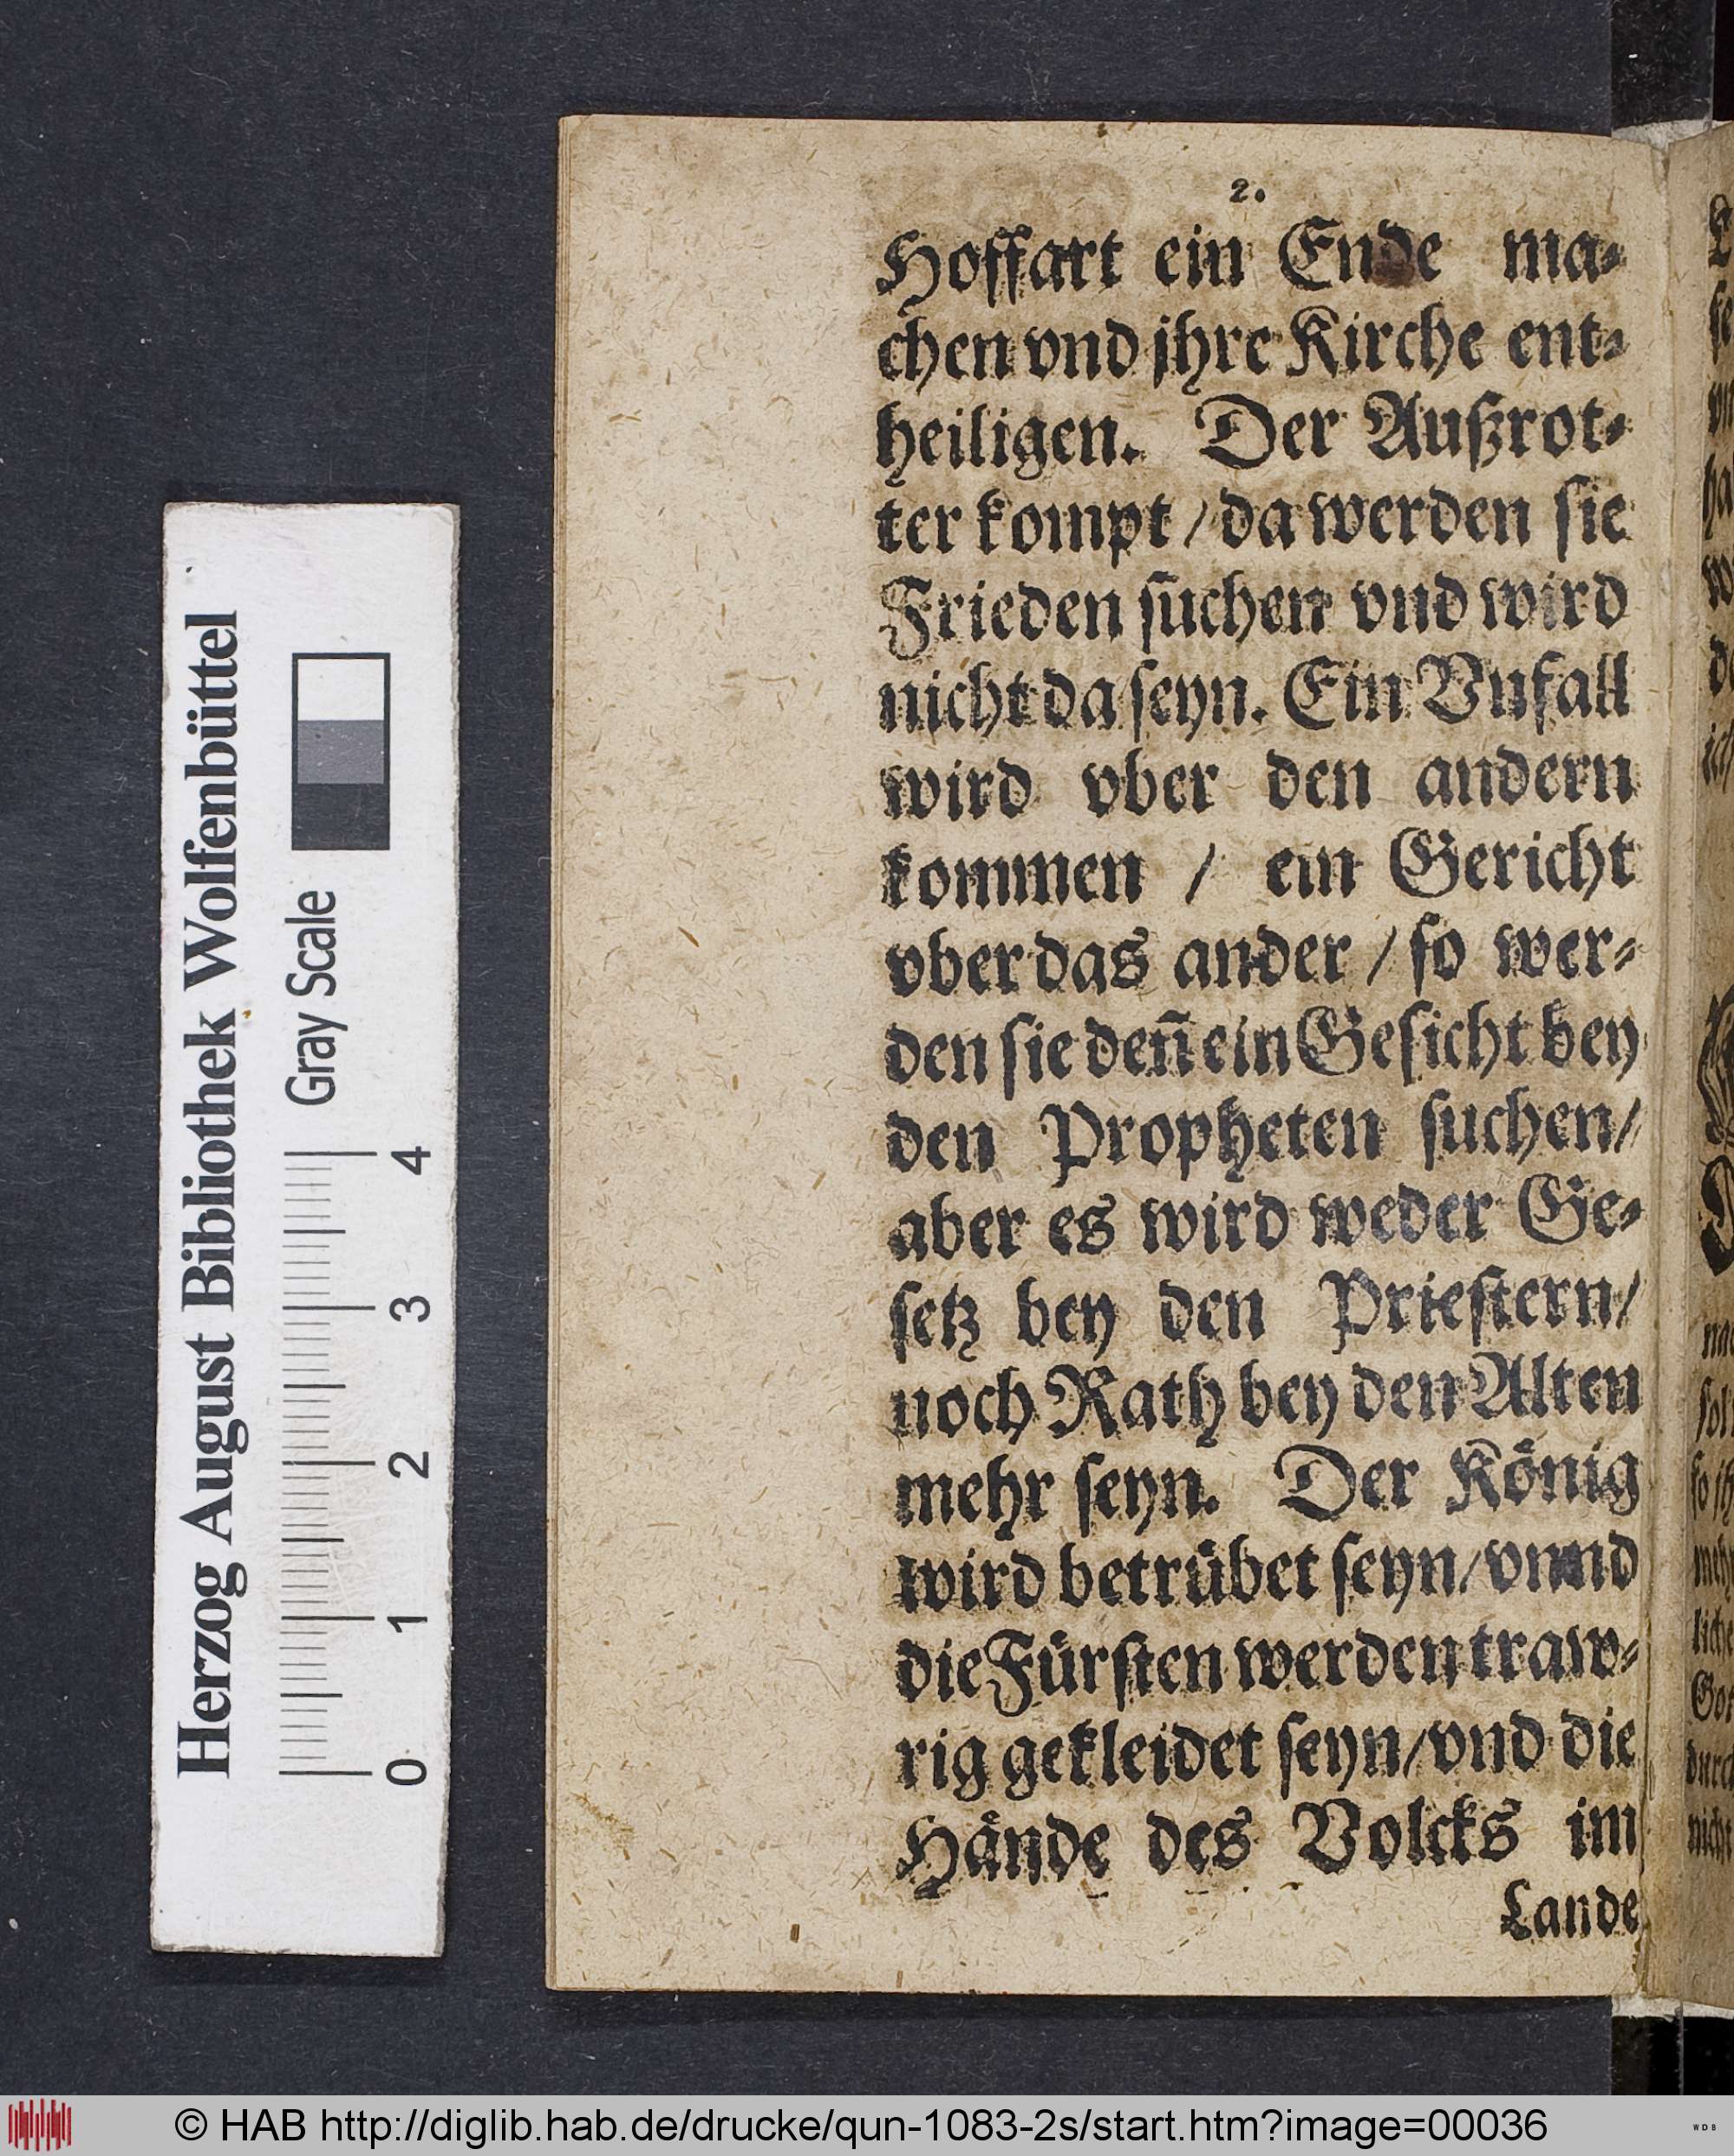 2.
Hoffart ein Ende ma⸗
chen vnd jhre Kirche ent⸗
heiligen. Der Außrot⸗
ter kompt / da werden sie
Frieden suchen vnd wird
nicht da seyn. Ein Vnfall
wird vber den andern
kommen / ein Gericht
vber das ander / so wer⸗
den sie deñ ein Gesicht bey
den Propheten suchen /
aber es wird weder Ge⸗
setz bey den Priestern /
noch Rath bey den Alten
mehr seyn. Der König
wird betrübet seyn / vnnd
die Fürsten werden traw⸗
rig gekleidet seyn / vnd die
Hände des Volcks im
Lande
Herzog August Bibliothek Wolfenbüttel
Gray Scale
0 1 2 3 4
© HAB http://diglib.hab.de/drucke/qun-1083-2s/start.htm?image=00036